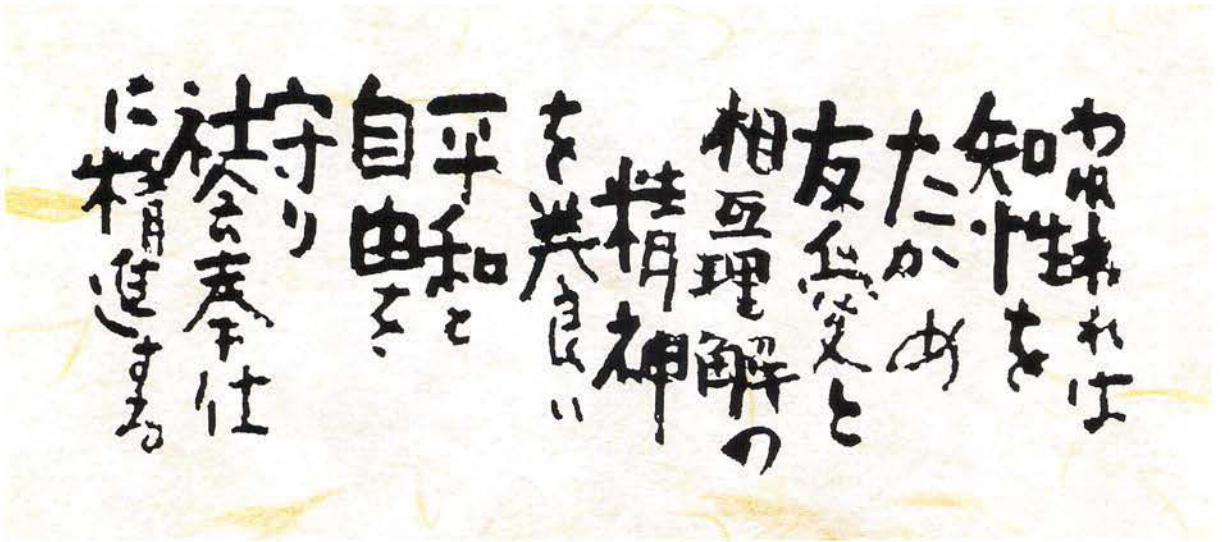 われわれは
知性を
たかめ
友愛と
相互理解の
精神
を養い
平和と
自由を
守り
社会奉仕
に精進する